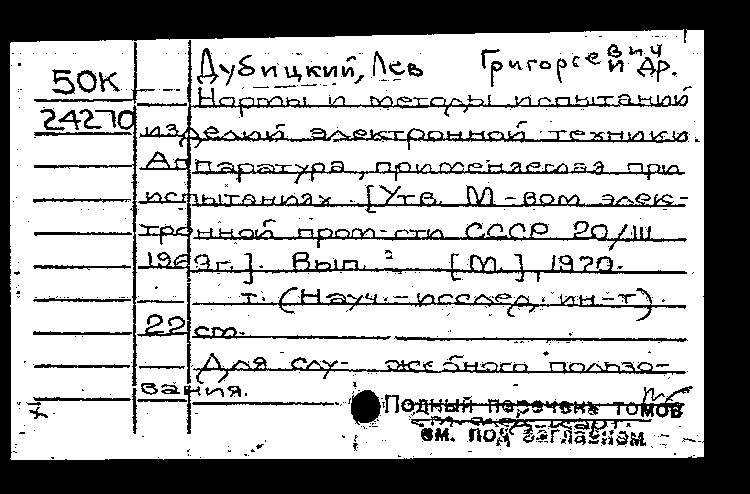 50К
24270
Дубицкий, Лев Григорьевич и др.
Нормы и методы испытаний
изделий электронной техники.
Аппаратура, применяемая при
испытаниях. [Утв. М-вом элек-
тронной пром-сти СССР 20/III
1969г.]. Вып. [М.], 1970.
т. (Науч.-исслед. ин-т).
22 см.
Для слу- жебного пользо-
вания.
Полный перечень томов
см. под заглавием